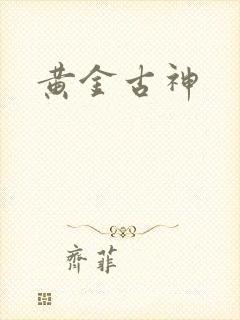 黄金古神
齊菲